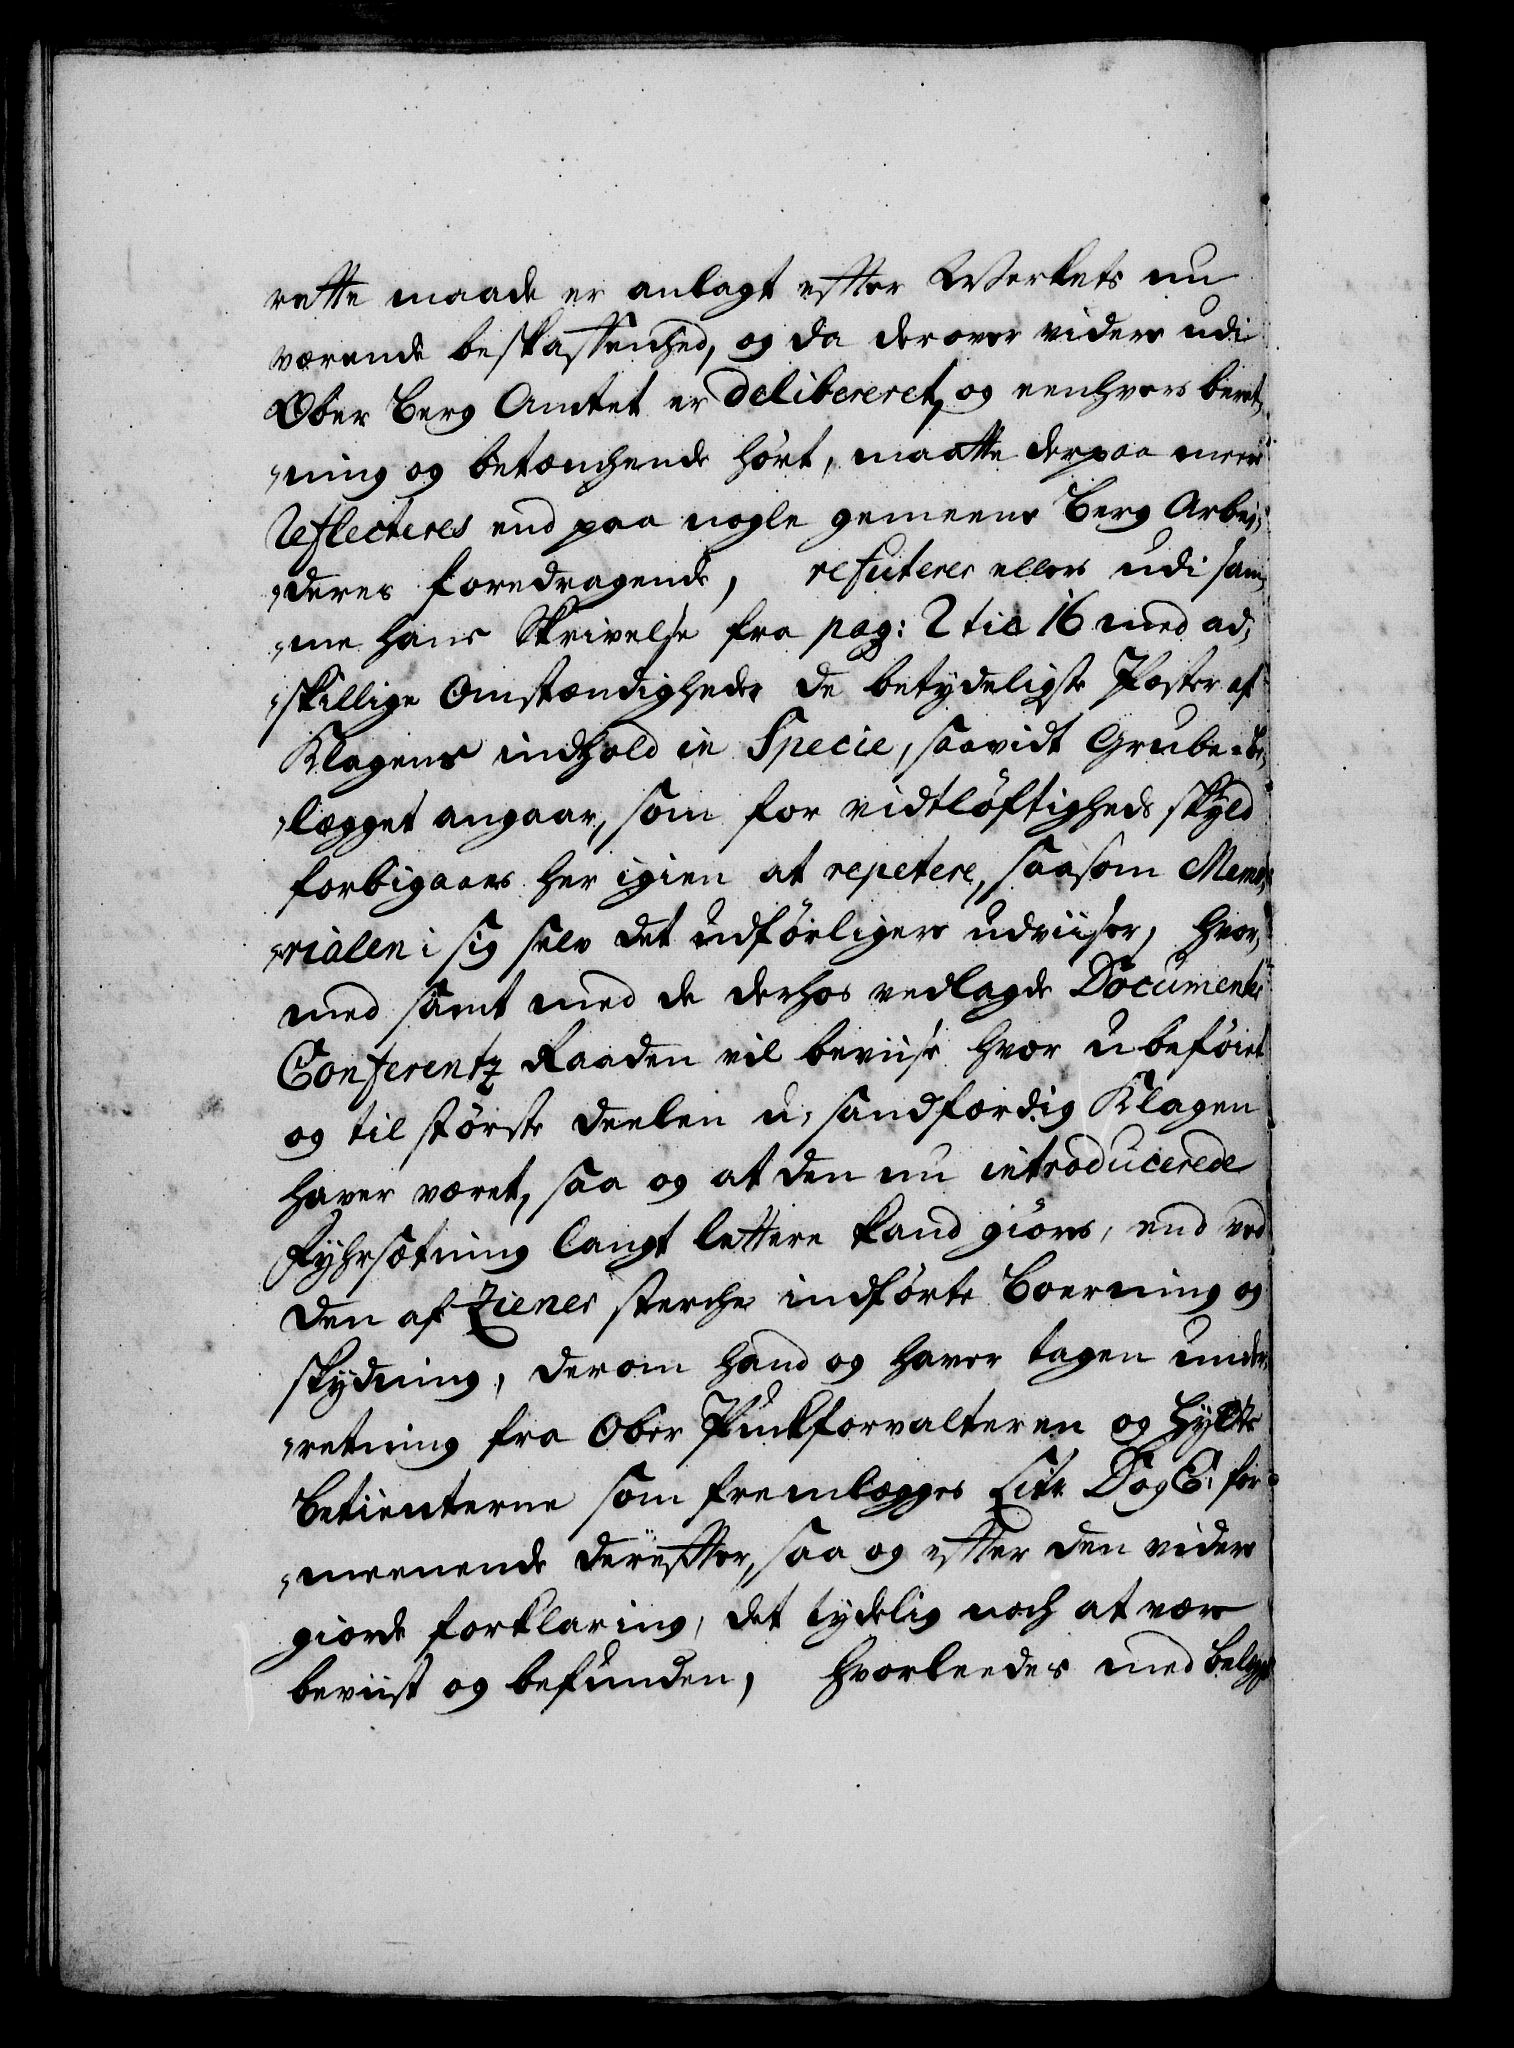 rette maade er anlagt efter Werkets nu
værende beskaffenhed, og da derover videre udi
Ober Berg Amtet er delibereret, og eenhvers beret,
„ning og betænchende hørt, maatte derpaa meere
reflecteres end paa nogle gemeene Berg Arbei,
„deres foredragende, refuterer ellers udi sam,
„me hans Skrivelse fra pag: 2 til 16 med ad,
„skillige Omstændigheder de betydeligste Poster af
Klagens indhold in Specie, saavidt Grube-be,
„lægget angaar, som for vidtløftigheds skyld
forbigaaes her igien at repetere, saasom Memo,
„rialen i sig selv det udførligere udviiser, hvor,
med samt med de derhos vedlagde Documenter
Conferentz Raaden vil beviise hvor ubeføiet
og til største deelen u-sandfærdig Klagen
haver været, saa og at den nu introducerede
Fyhrsætning langt lettere kand giøres, end ved
den af Ziener sterche indførte Boerning og
skydning, derom hand og haver tagen under,
„retning fra Ober Stukforvalteren og Hytte
Betienterne som fremlægges Litr D og E. for
„meenende derefter, saa og efter den videre
giorde forklaring, det tydelig noch at være
beviist og befunden, hvorleedes med belæg